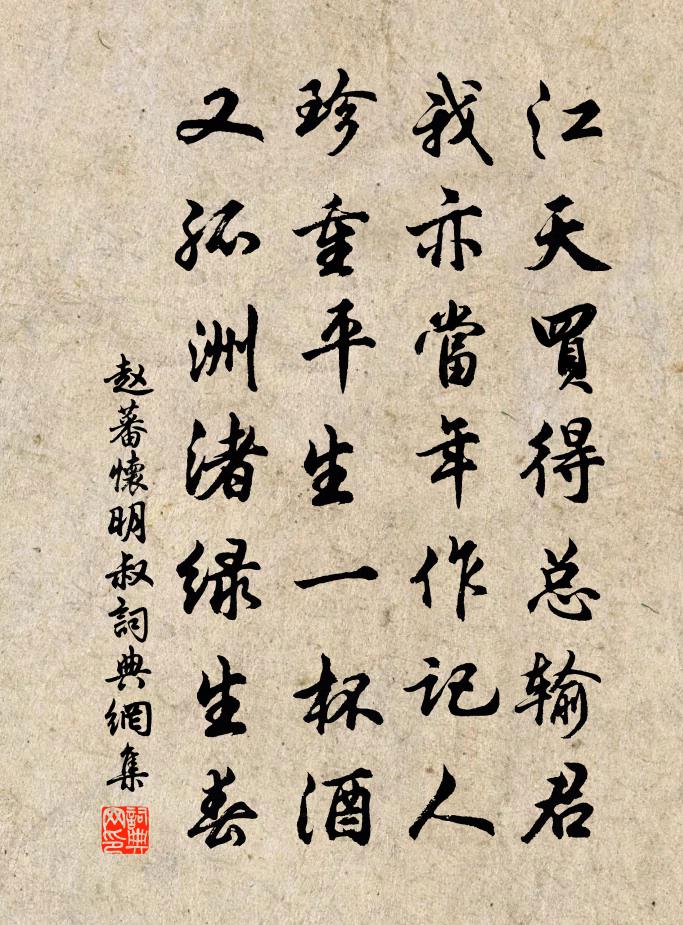 江天買得总输君
我亦當年作记人
珍重平生一杯酒
又孤洲渚绿生春
赵蕃懷明叔詞典網集
詞典网印